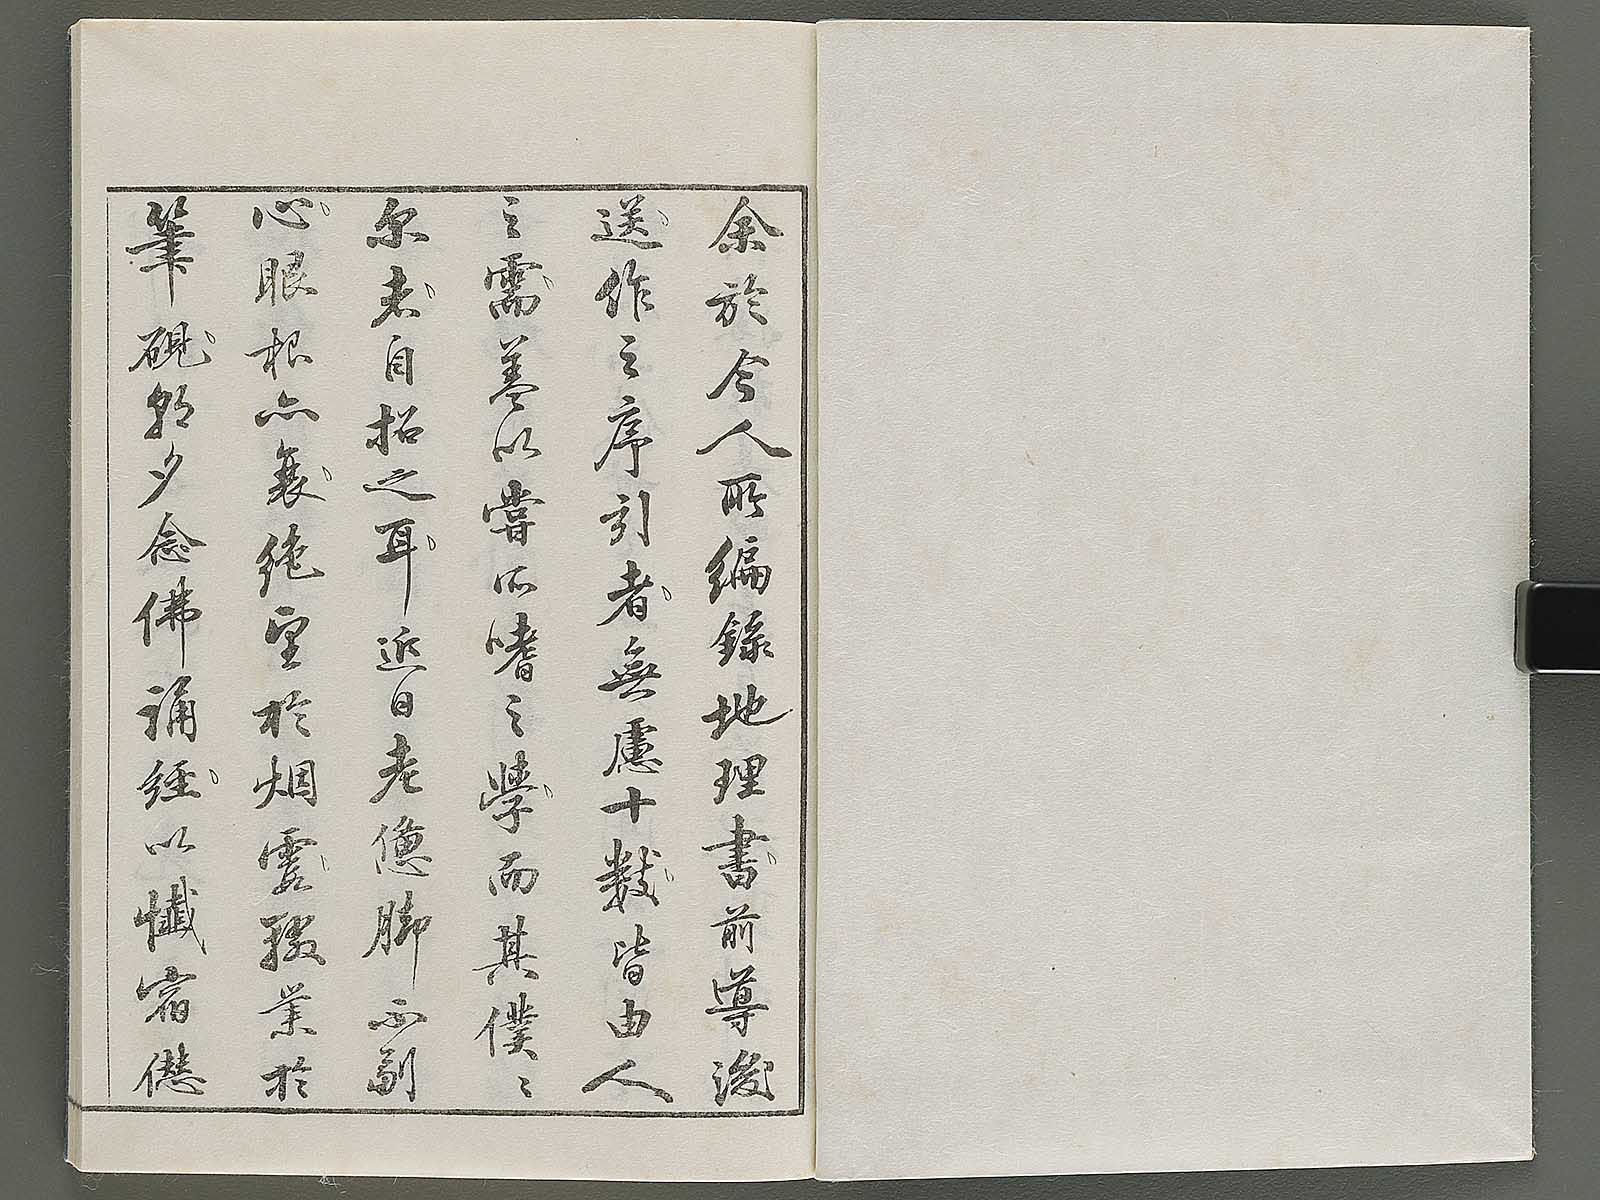 余於今人所編錄地理書前導後
送作之序引者、無慮十數、皆由人
之需、葢以嘗所嗜之學、而其僕〻
尔者、自招之耳、近日老憊脚不副
心、眼根亦衰、絶望於烟霞、輟業於
筆硯、朝夕念佛誦經、以懺宿愆